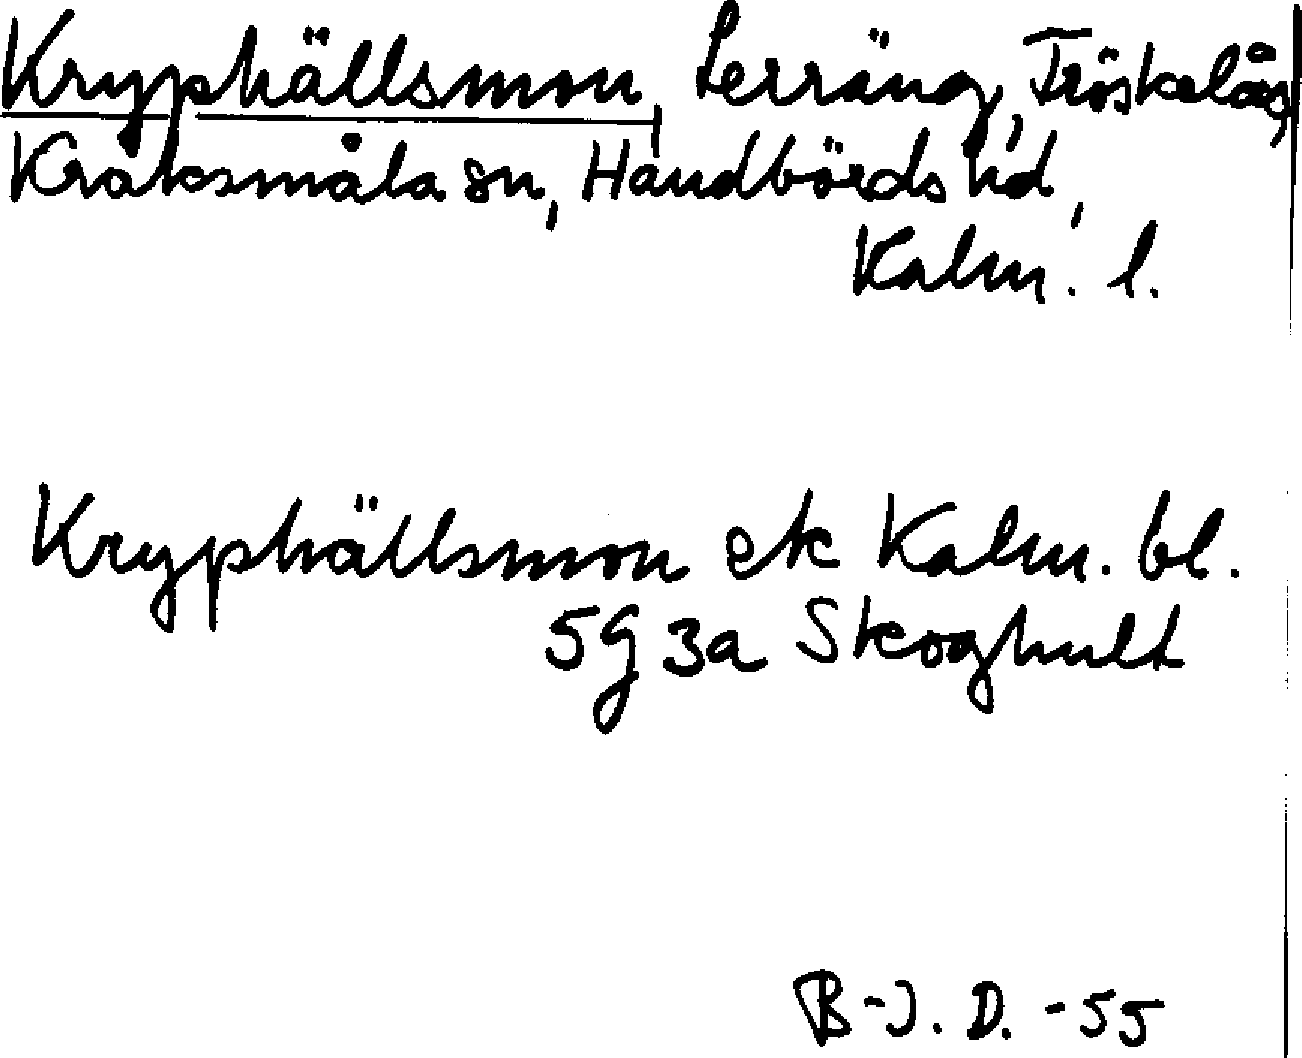 Kryphällsmon, Lerräng, Tröskelås,
Kråksmåla sn, Handbörds hd,
Kalm. l.
Kryphällsmon ek Kalm. bl.
5G 3a Skoghult
B-J. D. -55